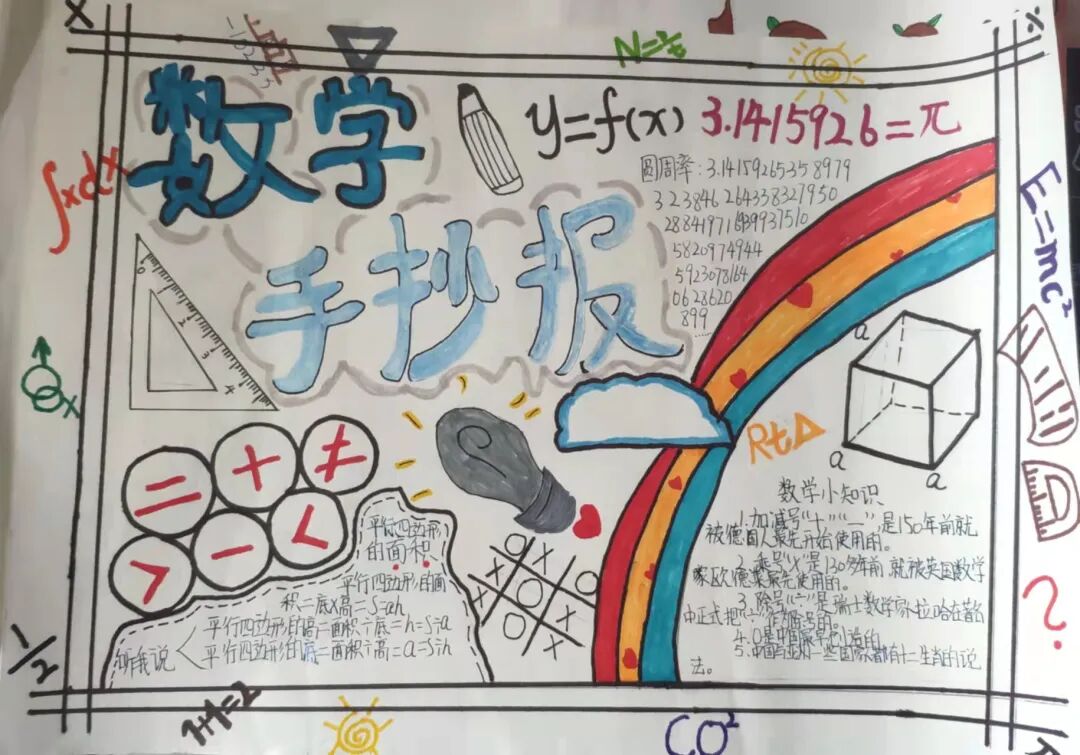 x
N=
数学
y=f(x)
3.1415926=π
∫xdx
圆周率:3.14159265358979
323846264338327950
5820974944
5923078164
0628620
899
手抄报
0
2
3
4
E=mc²
a
a
a
Rt△
= + ≠
> − <
平行四边形
的面积
平行四边形的面
积=底x高=S=ah
平行四边形的高=面积÷底=h=S÷a
听我说
平行四边形的底=面积÷高=a=S÷h
数学小知识
1.加减号"+""—",是150年前就
被德国人最先开始使用的。
2.乘号"x"是130多年前就被英国数学
最先使用的
3.除号"÷"是瑞士数学家拉哈在
中正式把"÷"作为除号的。
4.0是中国最早创造的
5.中国与亚洲一些国家都有十二生肖的说
法。
O X
X O
X O X
X
?
1/2
1+1=2
CO²